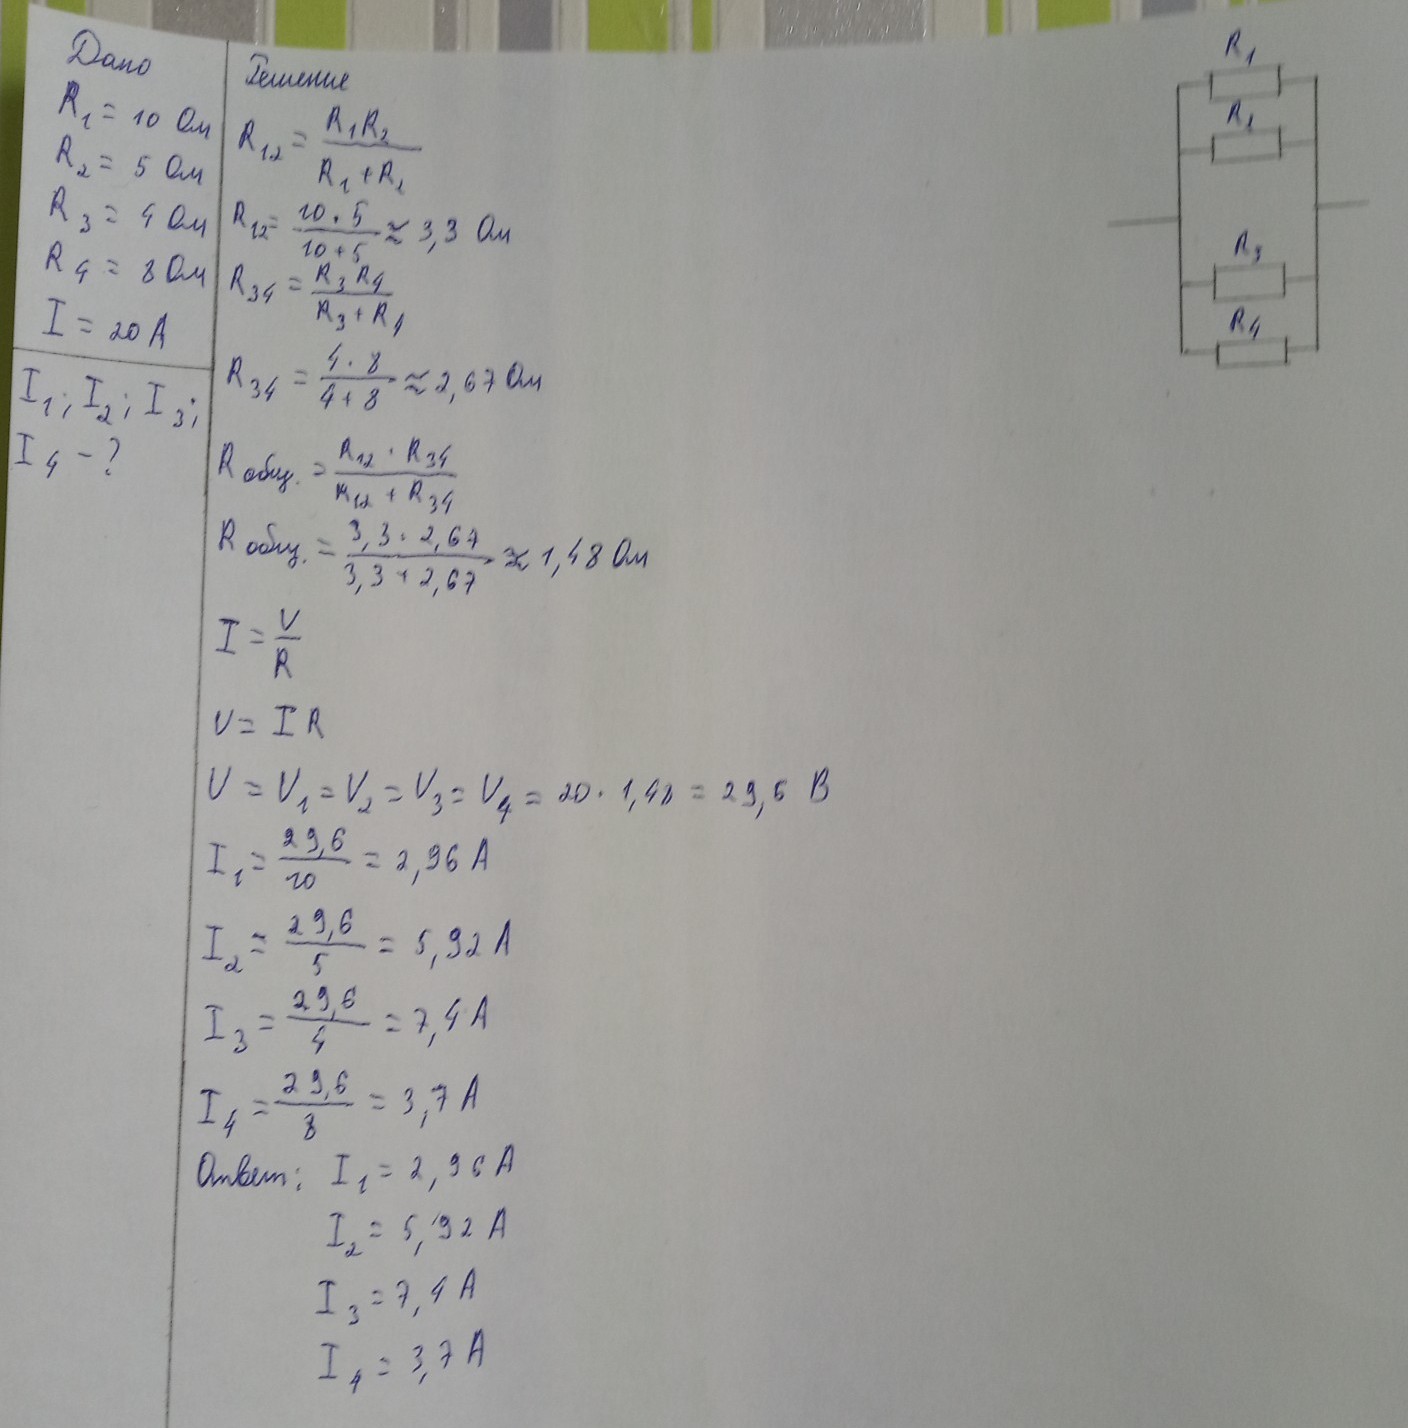 Дано
R₁ = 10 Ом
R₂ = 5 Ом
R₃ = 4 Ом
R₄ = 8 Ом
I = 20 А
I₁; I₂; I₃;
I₄ - ?
Решение
R₁₂ = R₁R₂ / R₁ + R₂
R₁₂ = 10 · 5 / 10 + 5 ≈ 3,3 Ом
R₃₄ = R₃R₄ / R₃ + R₄
R₃₄ = 4 · 8 / 4 + 8 ≈ 2,67 Ом
Rобщ. = R₁₂ · R₃₄ / R₁₂ + R₃₄
Rобщ. = 3,3 · 2,67 / 3,3 + 2,67 ≈ 1,48 Ом
I = U / R
U = I R
U = U₁ = U₂ = U₃ = U₄ = 20 · 1,48 = 29,6 В
I₁ = 29,6 / 10 = 2,96 А
I₂ = 29,6 / 5 = 5,92 А
I₃ = 29,6 / 4 = 7,4 А
I₄ = 29,6 / 8 = 3,7 А
Ответ: I₁ = 2,96 А
I₂ = 5,92 А
I₃ = 7,4 А
I₄ = 3,7 А
R₁
R₂
R₃
R₄